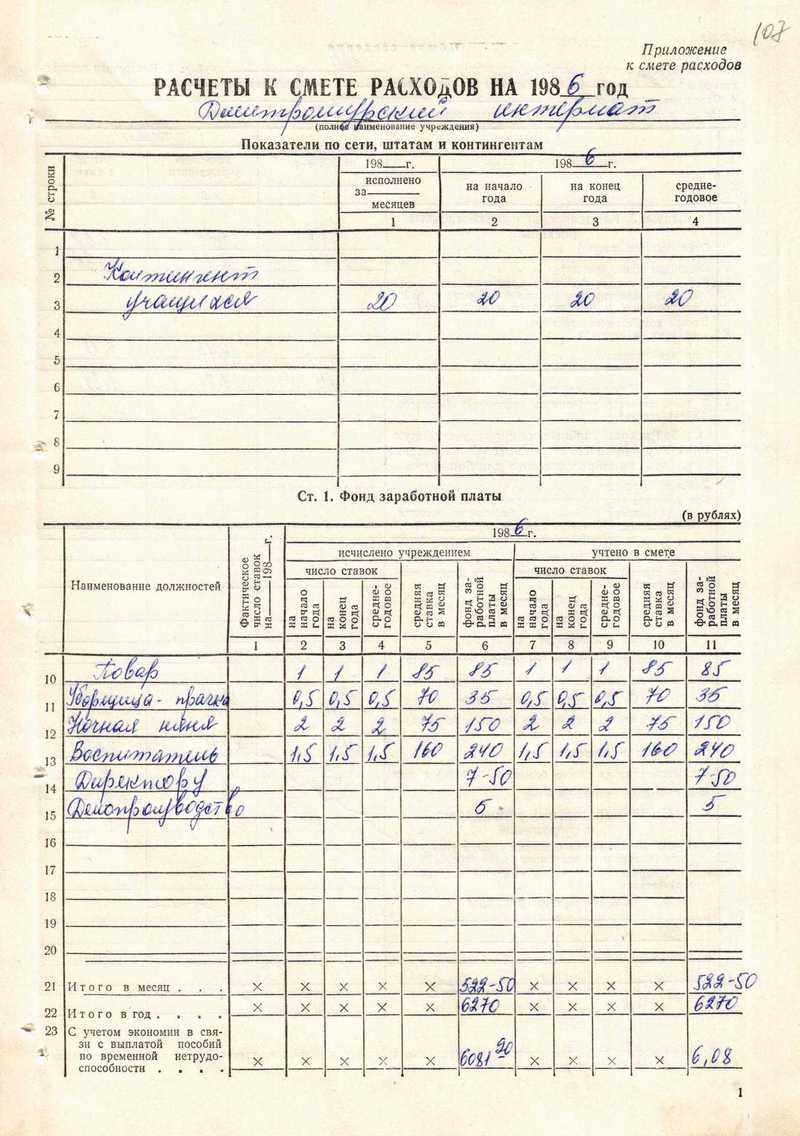 107
Приложение
к смете расходов
РАСЧЕТЫ К СМЕТЕ РАСХОДОВ НА 1986 год
Дмитрошурский интернат
(полное наименование учреждения)
Показатели по сети, штатам и контингентам
№ строки
198 г.
1986 г.
исполнено за месяцев
на начало года
на конец года
средне-годовое
1 2 3 4
1
2 Контингент
3 учащихся 20 20 20 20
4
5
6
7
8
9
Ст. 1. Фонд заработной платы
(в рублях)
Наименование должностей
Фактическое число ставок на 198 г.
1986 г.
исчислено учреждением
учтено в смете
число ставок
число ставок
на начало года
на конец года
средне-годовое
средняя ставка в месяц
фонд за-работной платы в месяц
на начало года
на конец года
средне-годовое
средняя ставка в месяц
фонд за-работной платы в месяц
1 2 3 4 5 6 7 8 9 10 11
10 Повар 1 1 1 85 85 1 1 1 85 85
11 Уборщица-прачка 0,5 0,5 0,5 70 35 0,5 0,5 0,5 70 35
12 Ночная няня 2 2 2 75 150 2 2 2 75 150
13 Воспитатель 1,5 1,5 1,5 160 240 1,5 1,5 1,5 160 240
14 Директору 7-50 7-50
15 Делопроизводство 5 5
16
17
18
19
20
21 Итого в месяц . . . × × × × × 522-50 × × × × 522-50
22 Итого в год . . . . × × × × × 6270 × × × × 6270
23 С учетом экономии в свя-
зи с выплатой пособий
по временной нетрудо-
способности . . . . × × × × × 6081 90 × × × × 6,08
1